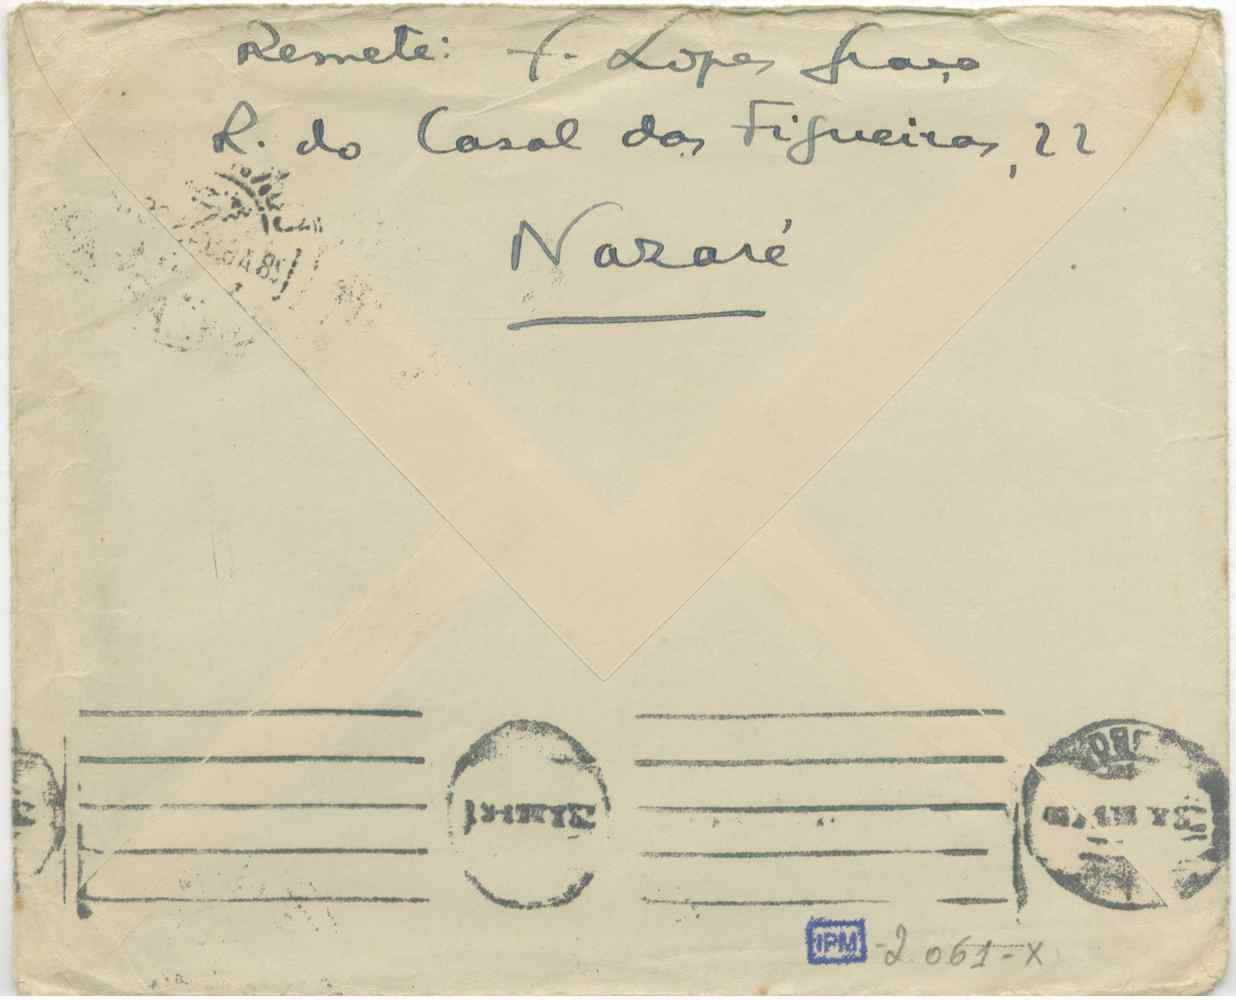 Remete: F. Lopes Graça
R. do Casal das Figueiras, 22
Nazaré
IPM -2.061-X